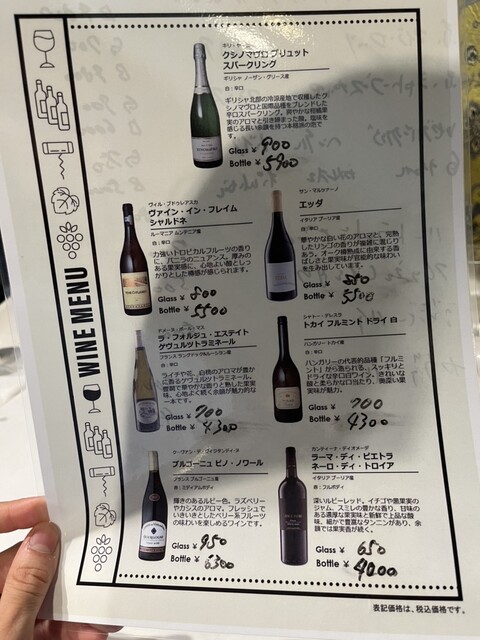 WINE MENU
クシノマヴロ ブリュット
スパークリング
ギリシャ ノーザン・グリース産
白：辛口
ギリシャ北部の冷涼産地で収穫したク
シノマヴロと国際品種をブレンドした
辛口スパークリング。爽やかな柑橘果
実のアロマと引き締まった酸。塩味を
感じる長い余韻を持つ本格派の泡で
す。
Glass ¥ 900
Bottle ¥ 5900
ヴィル・ブドゥレアスカ
ヴァイン・イン・フレイム
シャルドネ
ルーマニア ムンテニア産
白：辛口
力強いトロピカルフルーツの香り
に、バニラのニュアンス。厚みの
ある果実感に、心地よい酸としっ
かりとした樽感が感じられます。
Glass ¥ 800
Bottle ¥ 5500
サン・マルツァーノ
エッダ
イタリア プーリア産
白：辛口
華やかな白い花のアロマと、完熟
したリンゴの香りが複雑に混じり
あう。オーク樽熟成に由来する香
ばしさと果実味が官能的な味わい
を生み出しています。
Glass ¥ 850
Bottle ¥ 5500
ドメーヌ・ポール・マス
ラ・フォルジュ・エステイト
ゲヴュルツトラミネール
フランス ラングドック&ルーション産
白：辛口
ライチや花、白桃のアロマが豊か
に香るゲヴュルツトラミネール。
骨格で華やかな香りと熟した果実
味、心地よく続く余韻が魅力的な
一本です。
Glass ¥ 700
Bottle ¥ 4300
シャトー・デレスラ
トカイ フルミント ドライ 白
ハンガリー トカイ産
白：辛口
ハンガリーの代表的品種「フルミ
ント」から造られる。スッキリと
ドライな辛口白ワイン。きれいな
酸と柔らかな口当たり、奥深い果
実味が魅力。
Glass ¥ 700
Bottle ¥ 4300
ブルゴーニュ ピノ・ノワール
フランス ブルゴーニュ産
赤：ミディアムボディ
輝きのあるルビー色。ラズベリー
やカシスのアロマ。フレッシュで
いきいきとしたベリー系フルーツ
の味わいを楽しめるワインです。
Glass ¥ 950
Bottle ¥ 6300
カンティーナ・ディオメーデ
ラーマ・ディ・ピエトラ
ネーロ・ディ・トロイア
イタリア プーリア産
赤：フルボディ
深いルビーレッド。イチゴや黒果実の
ジャム、スミレの豊かな香り。甘味の
ある濃厚な果実味と新鮮で上品な酸
味、細かで豊富なタンニンがあり、余韻
では果実香が続く。
Glass ¥ 650
Bottle ¥ 4000
表記価格は、税込価格です。